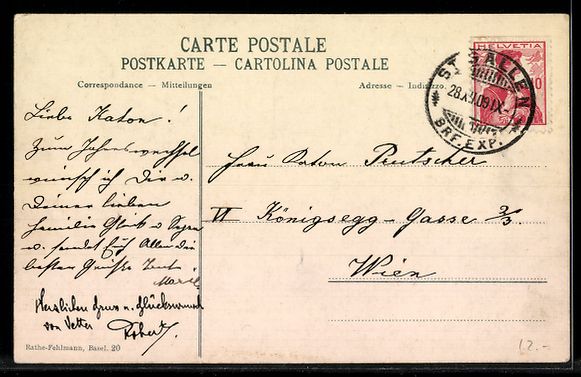 CARTE POSTALE
POSTKARTE — CARTOLINA POSTALE
Correspondance — Mitteilungen
Adresse — Indirizzo.
HELVETIA
10
ST. GALLEN
BRF. EXP.
Liebe Katon!
Zum Jahreswechsel
wünsch ich Dir u.
Deiner lieben
Familie Glück u Segen
u. sendet Euch Allen die
besten Grüsse
Herzlichen Gruss u. Glückswunsch
von Vetter Robert.
Frau Anton Peutscher
VI Königsegg-Gasse 2/3.
Wien
Rathe-Fehlmann, Basel. 20
12.-